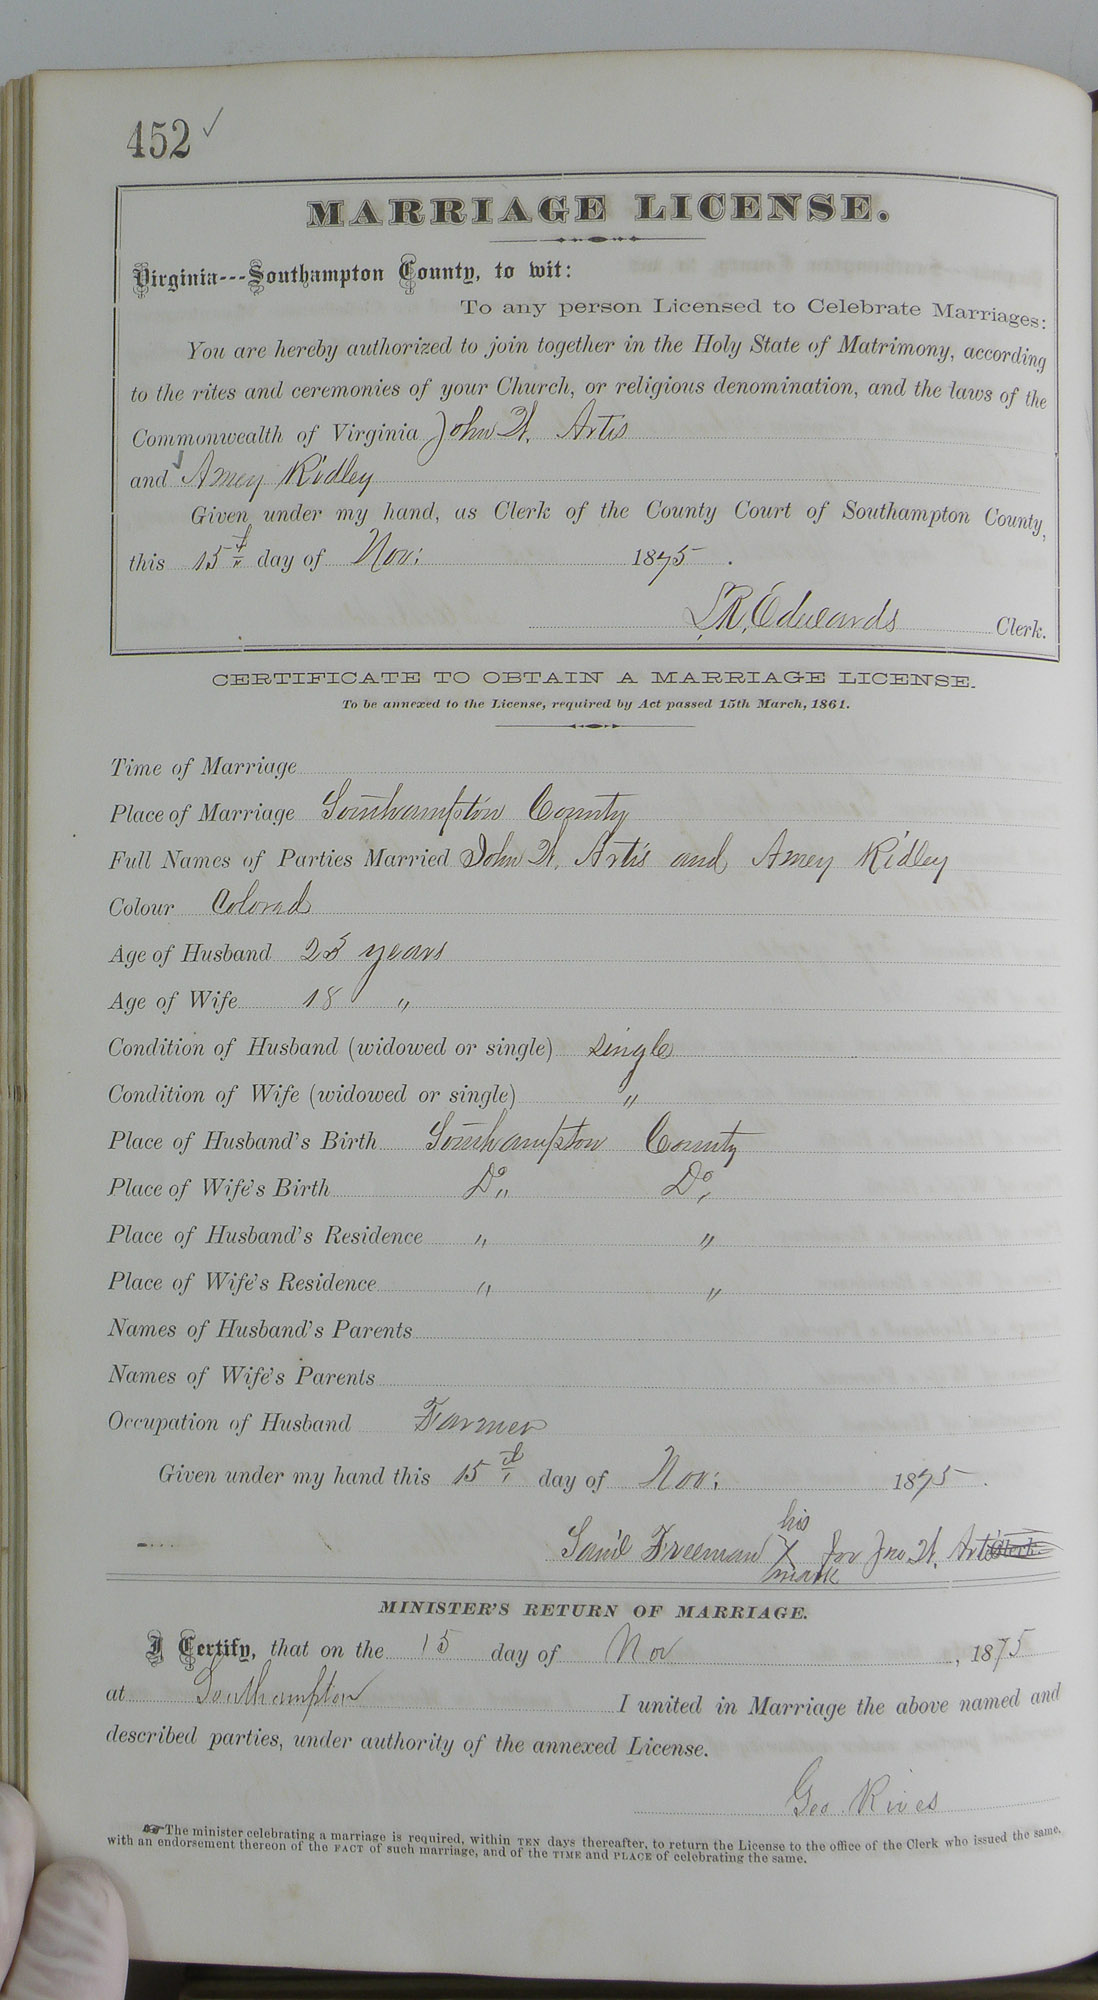 452 ✓
MARRIAGE LICENSE.
Virginia---Southampton County, to wit:
To any person Licensed to Celebrate Marriages:
You are hereby authorized to join together in the Holy State of Matrimony, according
to the rites and ceremonies of your Church, or religious denomination, and the laws of the
Commonwealth of Virginia John W. Artis
and Amey Ridley
Given under my hand, as Clerk of the County Court of Southampton County,
this 15th day of Nov: 1875.
L.R. Edwards Clerk.
CERTIFICATE TO OBTAIN A MARRIAGE LICENSE.
To be annexed to the License, required by Act passed 15th March, 1861.
Time of Marriage
Place of Marriage Southampton County
Full Names of Parties Married John W. Artis and Amey Ridley
Colour Colored
Age of Husband 23 years
Age of Wife 18 "
Condition of Husband (widowed or single) single
Condition of Wife (widowed or single) "
Place of Husband's Birth Southampton County
Place of Wife's Birth Do " Do "
Place of Husband's Residence " "
Place of Wife's Residence " "
Names of Husband's Parents
Names of Wife's Parents
Occupation of Husband Farmer
Given under my hand this 15th day of Nov: 1875.
his
Sam'l Freeman X for Jno W. Artis Clerk.
mark
MINISTER'S RETURN OF MARRIAGE.
I Certify, that on the 15 day of Nov, 1875
at Southampton I united in Marriage the above named and
described parties, under authority of the annexed License.
Geo. Rives
☞ The minister celebrating a marriage is required, within TEN days thereafter, to return the License to the office of the Clerk who issued the same,
with an endorsement thereon of the FACT of such marriage, and of the TIME and PLACE of celebrating the same.